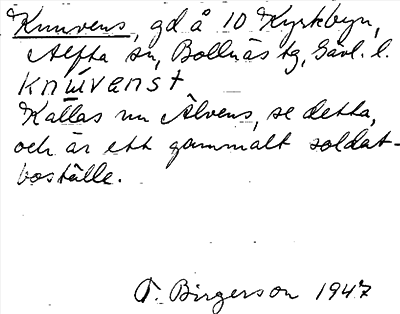 Knuvens, gd å 10 Kyrkbyn,
Alfta sn, Bollnäs tg, Gävl. l.
Kallas nu Älvens, se detta,
och är ett gammalt soldat-
boställe.
T. Birgerson 1947